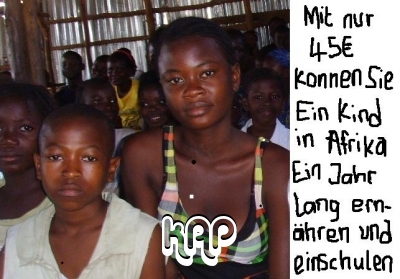 Mit nur
45€
konnen Sie
Ein Kind
in Afrika
Ein Jahr
Lang ern-
ähren und
einschulen
KAP